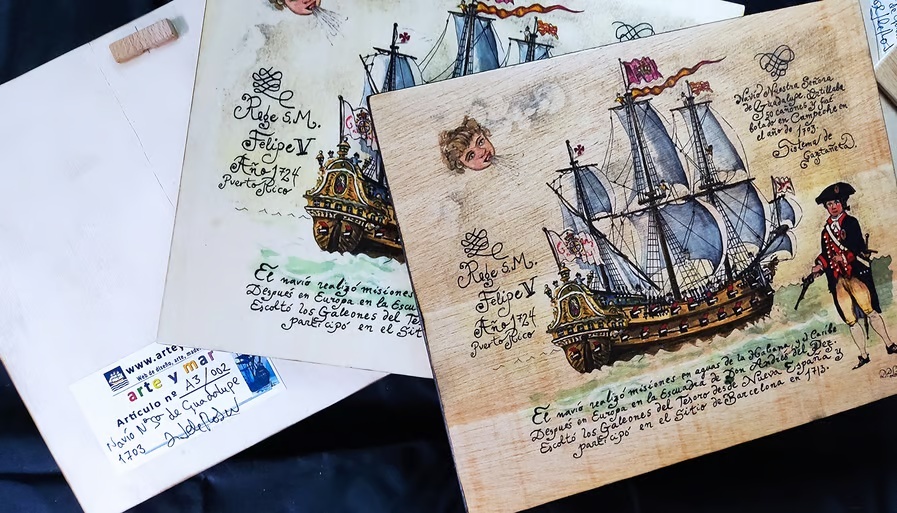 Rege S.M.
Felipe V
Año 1724
Puerto Rico
El navió realizó misiones
Después en Europa en la Escu
Escoltó los Galeones del Te
participó en el Sit
www.artey
Web de diseño, arte, made
arte y mar
Artículo nº A3/002
Navio Nª Sª de Guadalupe
1703
Navío Nuestra Señora
de Guadalupe. Artillaba
50 cañones y fue
botado en Campeche en
el año de 1703.
Sistema de
Gaztañeta.
Rege S.M.
Felipe V
Año 1724
Puerto Rico
El navió realizó misiones en aguas de la Habana y el Caribe
Después en Europa en la Escuadra de Don Andrés del Pez. y
Escoltó los Galeones del Tesoro desde Nueva España y
participó en el Sitio de Barcelona en 1713.